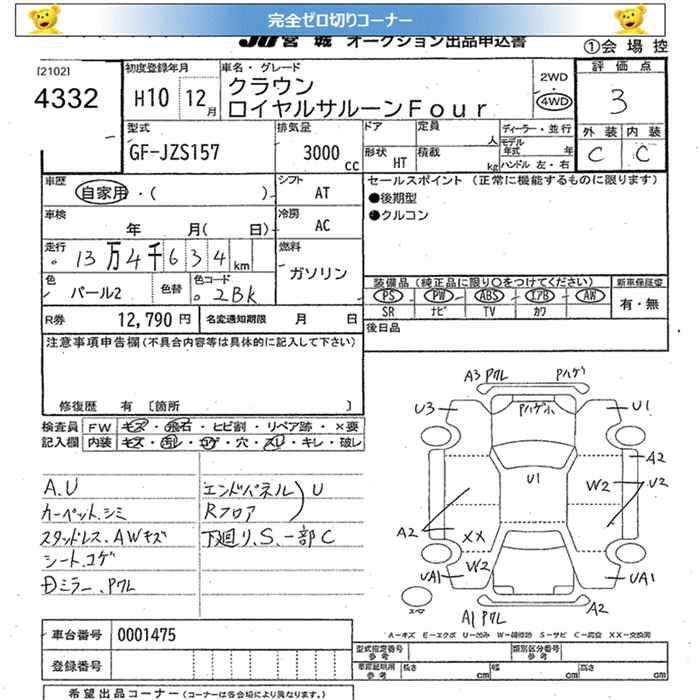 完全ゼロ切りコーナー
JU宮城 オークション出品申込書
①会場控
[2102]
4332
初度登録年月
H10 12月
車名・グレード
クラウン
ロイヤルサルーンFour
2WD
4WD
評価点
3
外装 内装
C C
型式
GF-JZS157
排気量
3000cc
ドア
定員 人
形状 HT
積載 kg
ディーラー・並行
モデル年式 年
ハンドル 左・右
車歴
自家用・( )
シフト
AT
セールスポイント (正常に機能するものに限ります)
●後期型
●クルコン
車検
年 月( 日)
冷房
AC
走行
13万4千634km
燃料
ガソリン
色
パール2
色替
色コード
2BK
装備品 (純正品に限り〇をつけてください)
新車保証書
PS PW ABS エアB AW
SR ナビ TV カワ
有・無
R券 12,790円
名変通知期限 月 日
後日品
注意事項申告欄(不具合内容等は具体的に記入して下さい)
修復歴 有 〔箇所 〕
検査員記入欄
FW キズ・飛石・ヒビ割・リペア跡・×要
内装 キズ・汚レ・コゲ・穴・スレ・キレ・破レ
A.U
カーペット.シミ
スタッドレス.AWキズ
シート.コゲ
Dミラー.Pクレ
エンドパネル
Rフロア
U
下廻り.S.一部C
A3 Pクレ
Pハゲ
U3
Pハゲ小
U1
A2
U1
W2
U2
A2
XX
W2
UA1
UA1
スペア
A1 Pクレ
A2
A-キズ E-エクボ U-凹み W-補修跡 S-サビ C-腐食 XX-交換済
車台番号 0001475
登録番号
型式指定番号 参考
類別区分番号 参考
車庫証明用 参考
長さ cm
幅 cm
高さ cm
希望出品コーナー(コーナーは各会場により異なります。)